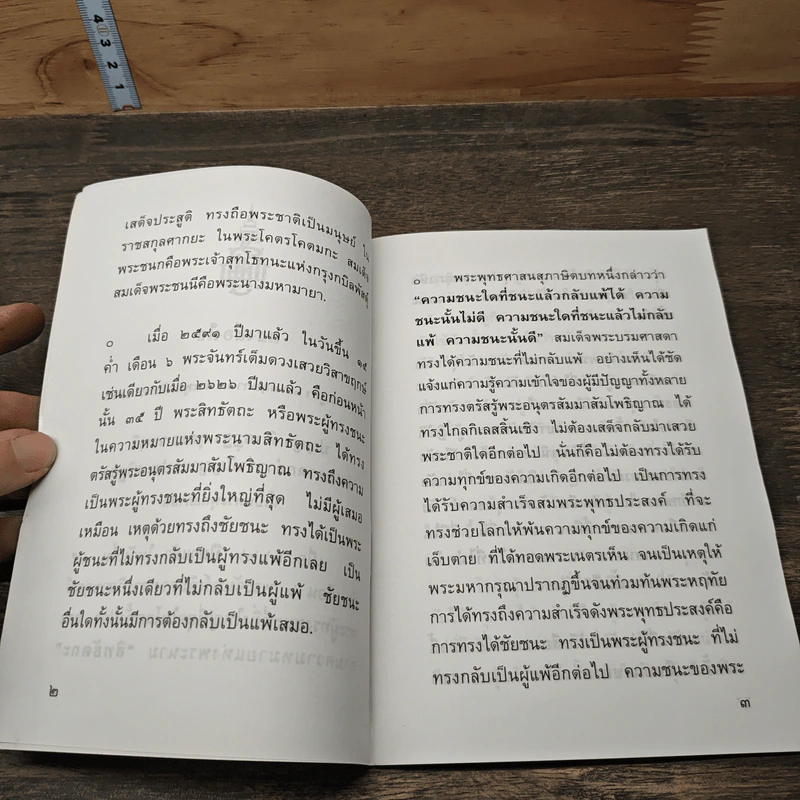 4
3
2
1
เสด็จประสูติ ทรงถือพระชาติเป็นมนุษย์ ใน
ราชสกุลศากยะ ในพระโคตรโคดมกะ สมเด็จ
พระชนกคือพระเจ้าสุทโธทนะแห่งกรุงกบิลพัสดุ์
สมเด็จพระชนนีคือพระนางมหามายา.
๐ เมื่อ ๒๕๙๑ ปีมาแล้ว ในวันขึ้น ๑๕
ค่ำ เดือน ๖ พระจันทร์เต็มดวงเสวยวิสาขฤกษ์
เช่นเดียวกับเมื่อ ๒๖๒๖ ปีมาแล้ว คือก่อนหน้า
นั้น ๓๕ ปี พระสิทธัตถะ หรือพระผู้ทรงชนะ
ในความหมายแห่งพระนามสิทธัตถะ ได้ทรง
ตรัสรู้พระอนุตรสัมมาสัมโพธิญาณ ทรงถึงความ
เป็นพระผู้ทรงชนะที่ยิ่งใหญ่ที่สุด ไม่มีผู้เสมอ
เหมือน เหตุด้วยทรงถึงชัยชนะ ทรงได้เป็นพระ
ผู้ชนะที่ไม่ทรงกลับเป็นผู้ทรงแพ้อีกเลย เป็น
ชัยชนะหนึ่งเดียวที่ไม่กลับเป็นผู้แพ้ ชัยชนะ
อื่นใดทั้งนั้นมีการต้องกลับเป็นแพ้เสมอ.
๒
๐ พระพุทธศาสนสุภาษิตบทหนึ่งกล่าวว่า
“ความชนะใดที่ชนะแล้วกลับแพ้ได้ ความ
ชนะนั้นไม่ดี ความชนะใดที่ชนะแล้วไม่กลับ
แพ้ ความชนะนั้นดี” สมเด็จพระบรมศาสดา
ทรงได้ความชนะที่ไม่กลับแพ้ อย่างเห็นได้ชัด
แจ้งแก่ความรู้ความเข้าใจของผู้มีปัญญาทั้งหลาย
การทรงตรัสรู้พระอนุตรสัมมาสัมโพธิญาณ ได้
ทรงไกลกิเลสสิ้นเชิง ไม่ต้องเสด็จกลับมาเสวย
พระชาติใดอีกต่อไป นั่นก็คือไม่ต้องทรงได้รับ
ความทุกข์ของความเกิดอีกต่อไป เป็นการทรง
ได้รับความสำเร็จสมพระพุทธประสงค์ ที่จะ
ทรงช่วยโลกให้พ้นความทุกข์ของความเกิดแก่
เจ็บตาย ที่ได้ทอดพระเนตรเห็น จนเป็นเหตุให้
พระมหากรุณาปรากฏขึ้นจนท่วมท้นพระหฤทัย
การได้ทรงถึงความสำเร็จดังพระพุทธประสงค์คือ
การทรงได้ชัยชนะ ทรงเป็นพระผู้ทรงชนะ ที่ไม่
ทรงกลับเป็นผู้แพ้อีกต่อไป ความชนะของพระ
๓